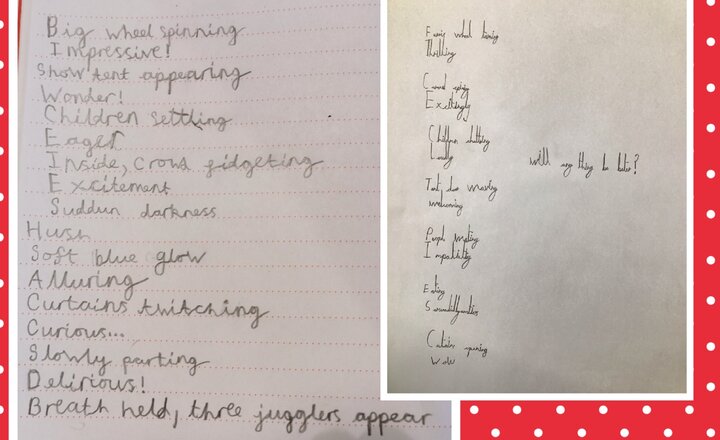 Big wheel spinning
Impressive!
Show tent appearing
Wonder!
Children settling
Eager
Inside, crowd fidgeting
Excitement
Suddun darkness
Hush
Soft blue glow
Alluring
Curtains twitching
Curious...
Slowly parting
Delirious!
Breath held, three jugglers appear
Ferris wheel
Thrilling
Excitingly
Children
Loudly
Tent
welcoming
People
Eating
opening
wow
will any thing be